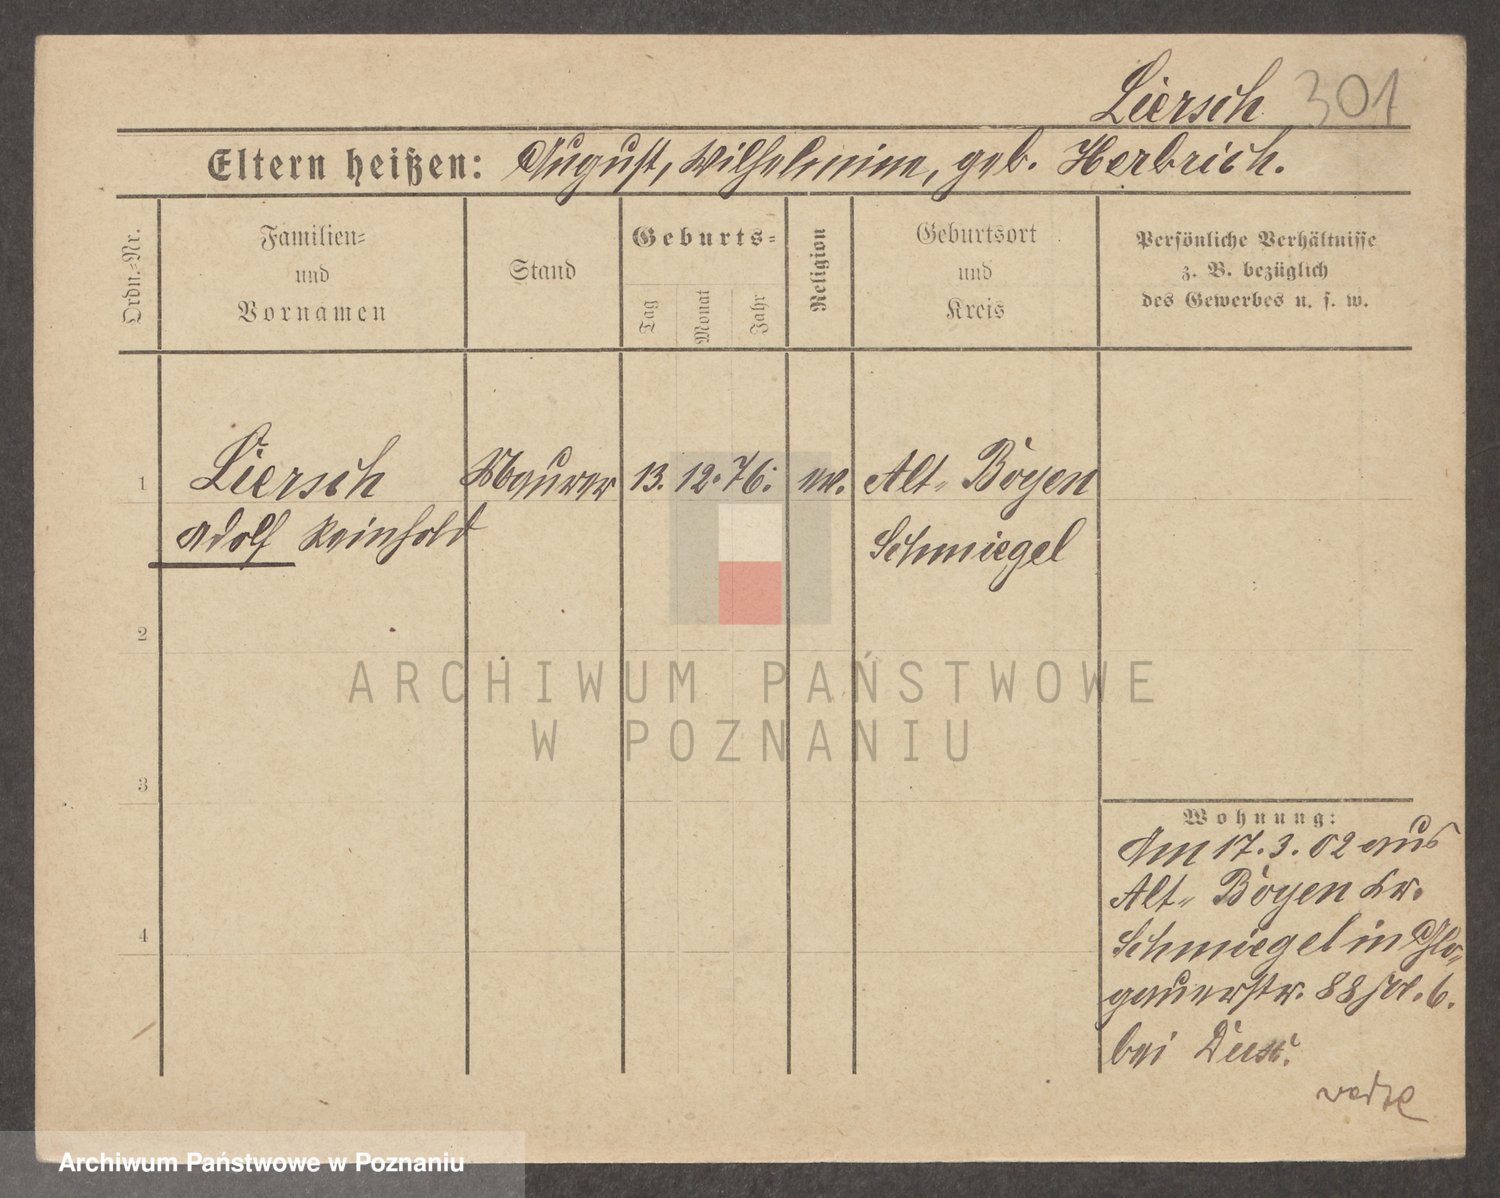 Liersch 301
Eltern heißen: August, Wilhelmine, geb. Herbrich.
Ordn.-Nr.
Familien-
und
Vornamen
Stand
Geburts-
Tag
Monat
Jahr
Religion
Geburtsort
und
Kreis
Persönliche Verhältnisse
z. B. bezüglich
des Gewerbes u. s. w.
1 Liersch Maurer 13. 12. 76. ev. Alt-Boyen
Adolf Reinhold Schmiegel
2
3
4
Wohnung:
Am 17.3.02 aus
Alt-Boyen Kr.
Schmiegel in Glo-
gauerstr. 88
bei
ARCHIWUM PAŃSTWOWE
W POZNANIU
Archiwum Państwowe w Poznaniu